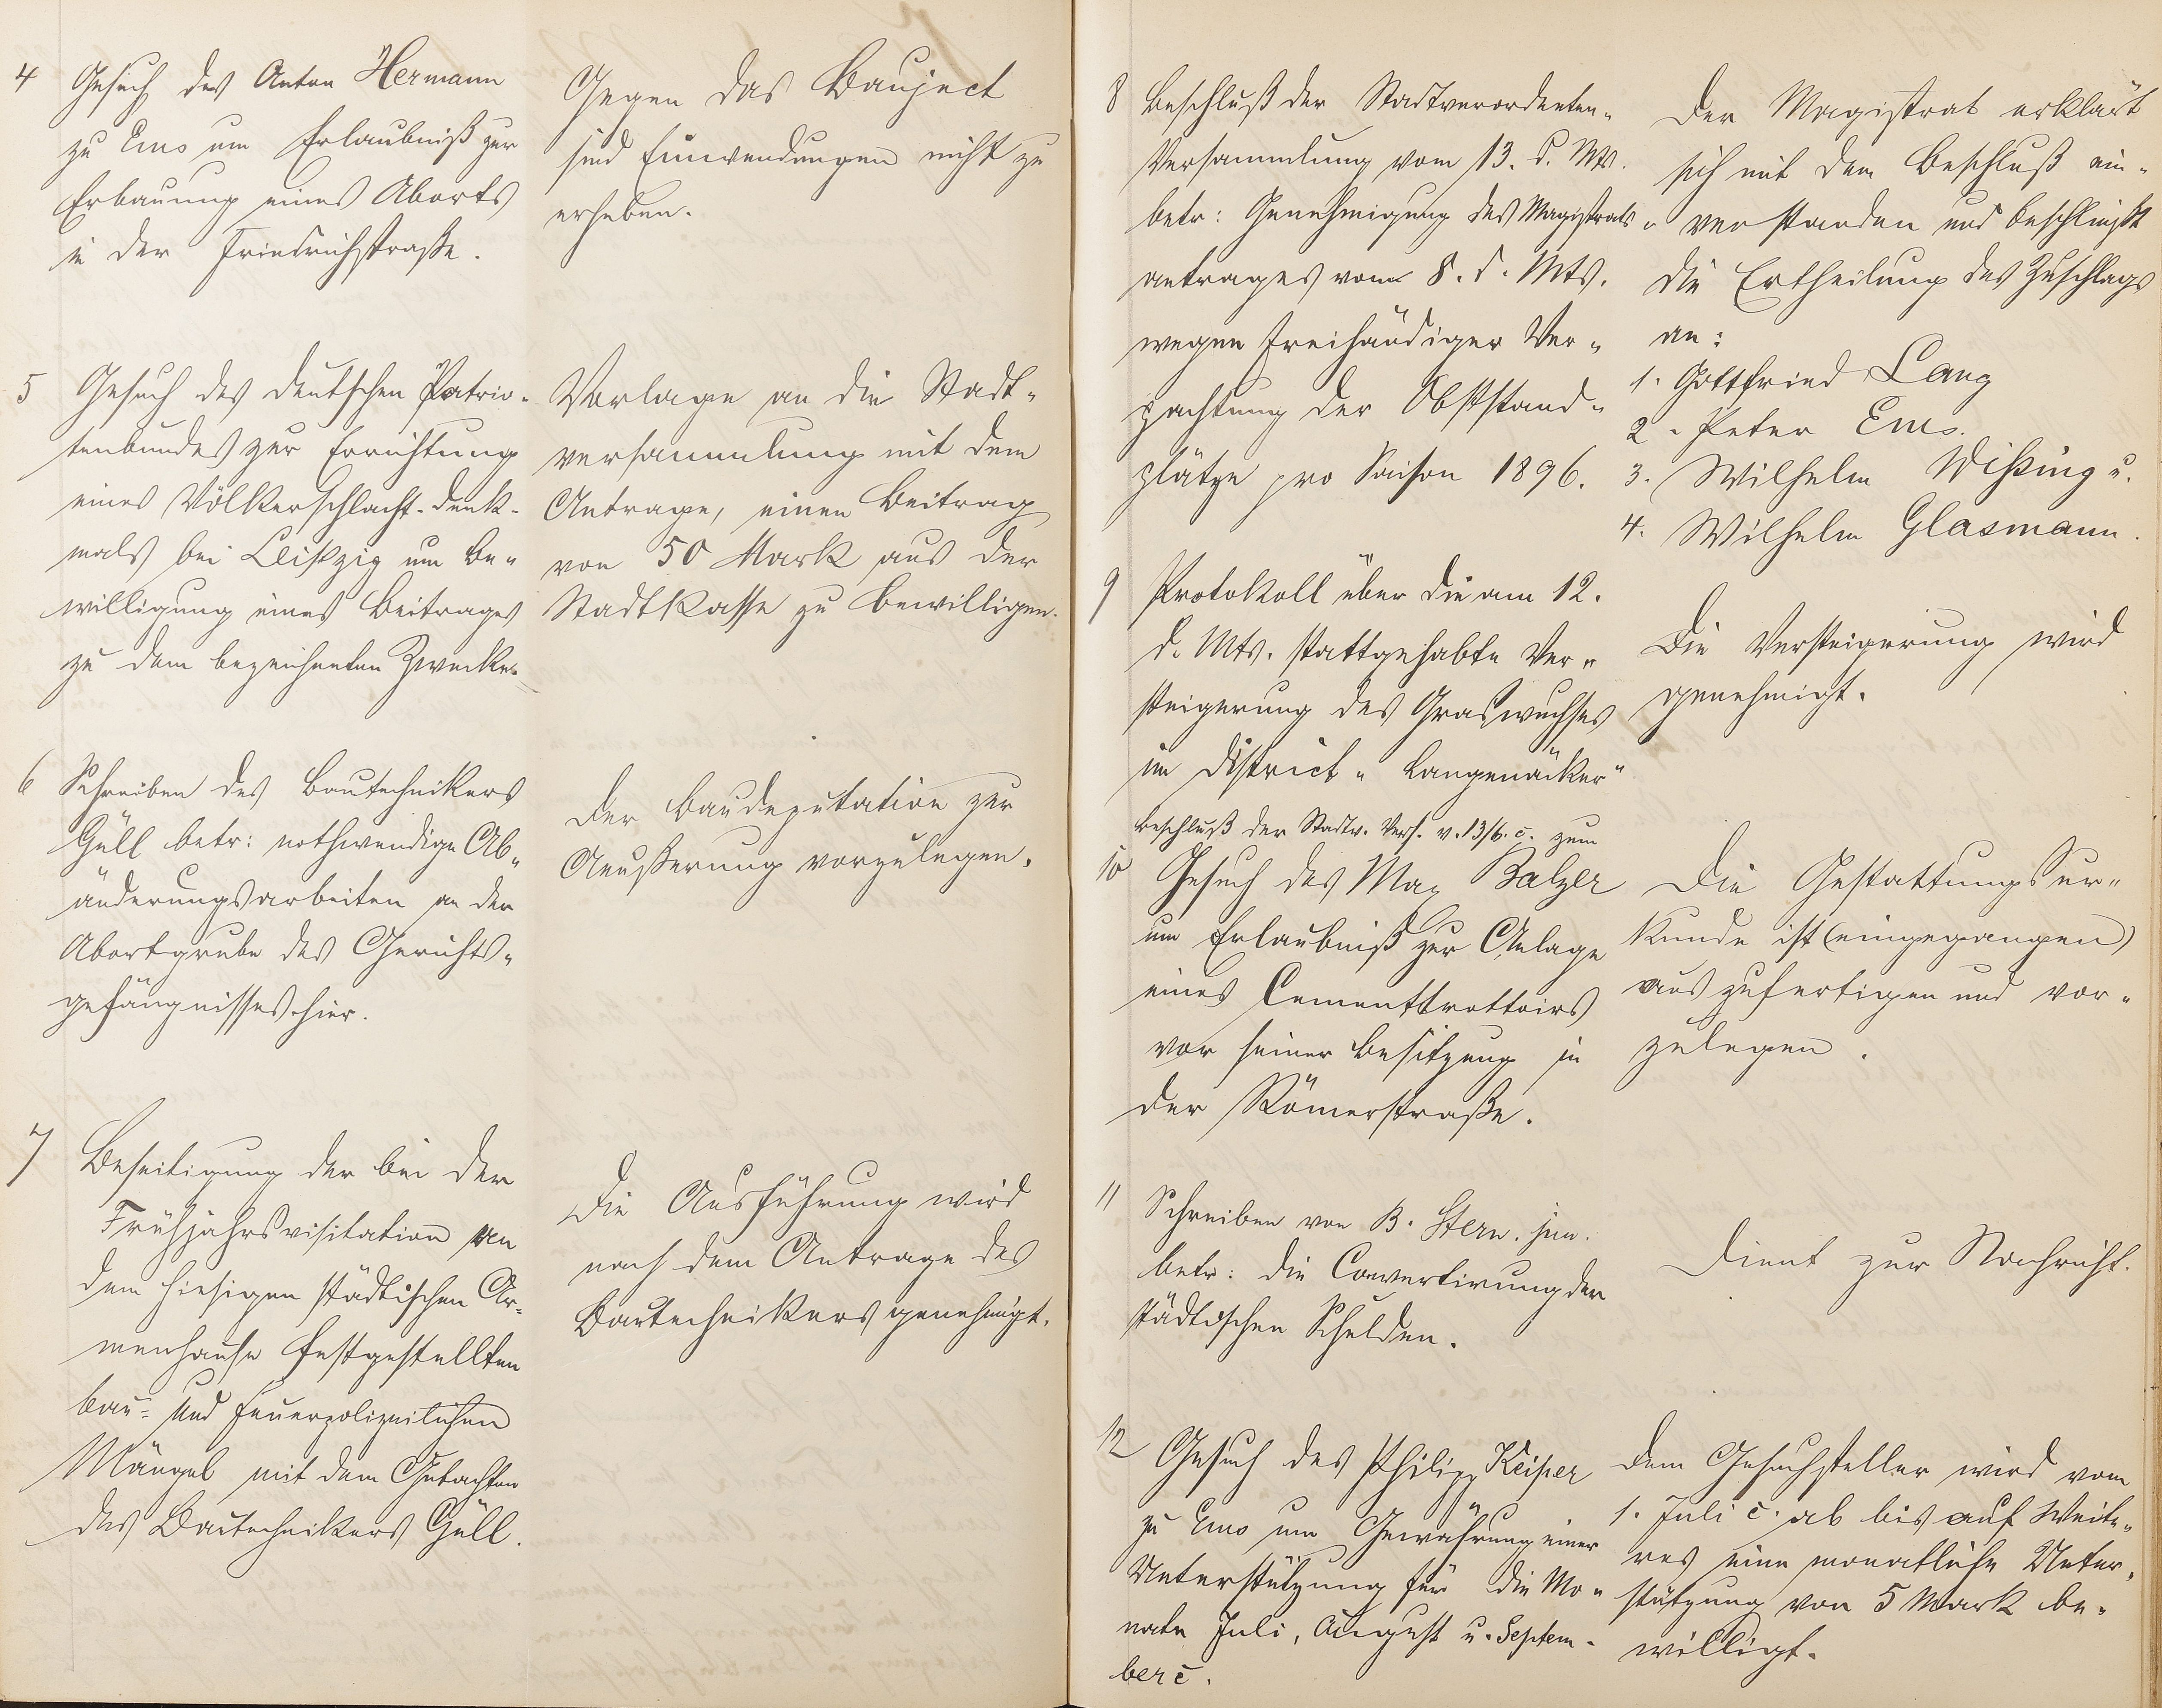 4 Gesuch des Anton Hermann
zu Ems um Erlaubniß zur
Erbauung eines Aborts
in der Friedrichstraße.
Gegen das Bauject
sind Einwendungen nicht zu
erheben.
5 Gesuch des deutschen Patrio-
tenbundes zur Errichtung
eines Völkerschlacht-Denk-
mals bei Leipzig um Be-
willigung eines Beitrages
zu dem bezeichneten Zwecke.
Vorlage an die Stadt-
versammlung mit dem
Antrage, einen Beitrag
von 50 Mark aus der
Stadtkasse zu bewilligen.
6 Schreiben des Bautechnikers
Güll betr: nothwendige Ab-
änderungsarbeiten an der
Abortgrube des Gerichts-
gefängnisses hier.
Der Baudeputation zur
Aeußerung vorzulegen.
7 Beseitigung der bei der
Frühjahrsvisitation an
dem hiesigen städtischen Ar-
menhause festgestellten
bau- und feuerpolizeilichen
Mängel mit dem Gutachten
des Bautechnikers Güll.
Die Ausführung wird
nach dem Antrage des
Bautechnikers genehmigt.
8 Beschluß der Stadtverordneten-
Versammlung vom 13. d. Mts.
betr: Genehmigung des Magistrats-
antrages vom 8. d. Mts.
wegen freihändiger Ver-
pachtung der Obststand-
plätze pro Saison 1896.
Der Magistrat erklärt
sich mit dem Beschluß ein-
verstanden und beschließt
die Ertheilung des Zuschlags
an:
1. Gottfried Lang
2. Peter Ems.
3. Wilhelm Wißing u.
4. Wilhelm Glasmann.
9 Protokoll über die am 12.
d. Mts. stattgehabte Ver-
steigerung des Graswuchses
im District "Langenäcker"
Die Versteigerung wird
genehmigt.
Beschluß der Stadtv. Vers. v. 13/6. c. zum
10 Gesuch des Max Balzer
um Erlaubniß zur Anlage
eines Cementtrottoirs
vor seiner Besitzung in
der Römerstraße.
Die Gestattungsur-
kunde ist (eingegangen)
auszufertigen und vor-
zulegen.
11 Schreiben von B. Stern. jun.
betr: die Convertirung der
städtischen Schulden.
Dient zur Nachricht.
12 Gesuch des Philipp Keiper
zu Ems um Gewährung einer
Unterstützung für die Mo-
nate Juli, August u. Septem-
ber c.
Dem Gesuchsteller wird vom
1. Juli c. ab bis auf Weite-
res eine monatliche Unter-
stützung von 5 Mark be-
willigt.